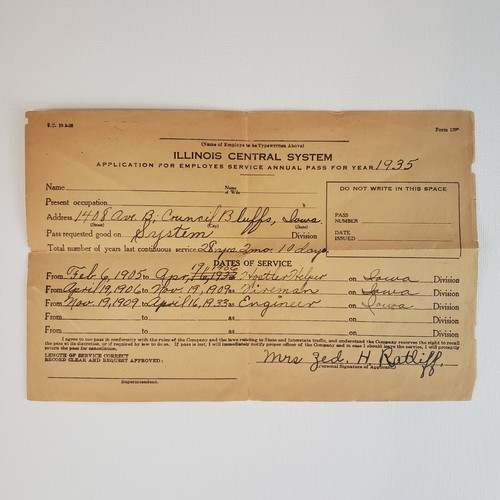 Form 1
(Name of Employe to be Typewritten Above)
ILLINOIS CENTRAL SYSTEM
APPLICATION FOR EMPLOYES SERVICE ANNUAL PASS FOR YEAR 1935
Name Name of Wife
DO NOT WRITE IN THIS SPACE
Present occupation
Address 1408 Ave B. Council Bluffs, Iowa
(Street) (City) (State)
PASS NUMBER
Pass requested good on System Division
DATE ISSUED
Total number of years last continuous service 28 yrs 2 mo 10 days
DATES OF SERVICE
From Feb 6, 1905 to Apr, 19, 1906 as Helper on Iowa Division
From April 19, 1906 to Nov 19, 1909 as Fireman on Iowa Division
From Nov, 19, 1909 to April 16, 1933 as Engineer on Iowa Division
From to as on Division
From to as on Division
I agree to use pass in conformity with the rules of the Company and the laws relating to State and Interstate traffic, and understand the Company reserves the right to recall
the pass at its discretion, or if required by law to do so. If pass is lost, I will immediately notify proper officer of the Company and in case I should leave the service, I will promptly
return the pass for cancellation.
LENGTH OF SERVICE CORRECT
RECORD CLEAR AND REQUEST APPROVED:
Mrs Zed. H. Ratliff.
(Personal Signature of Applicant)
(Superintendent)